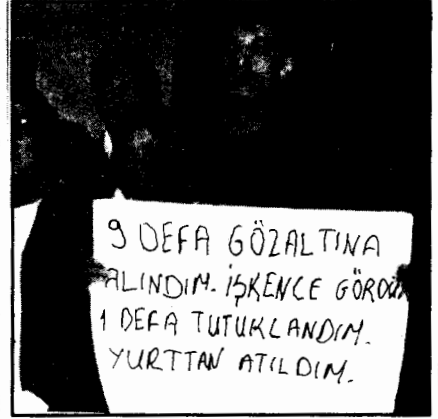 9 DEFA GÖZALTINA
ALINDIM. İŞKENCE GÖRDÜM
1 DEFA TUTUKLANDIM.
YURTTAN ATILDIM.